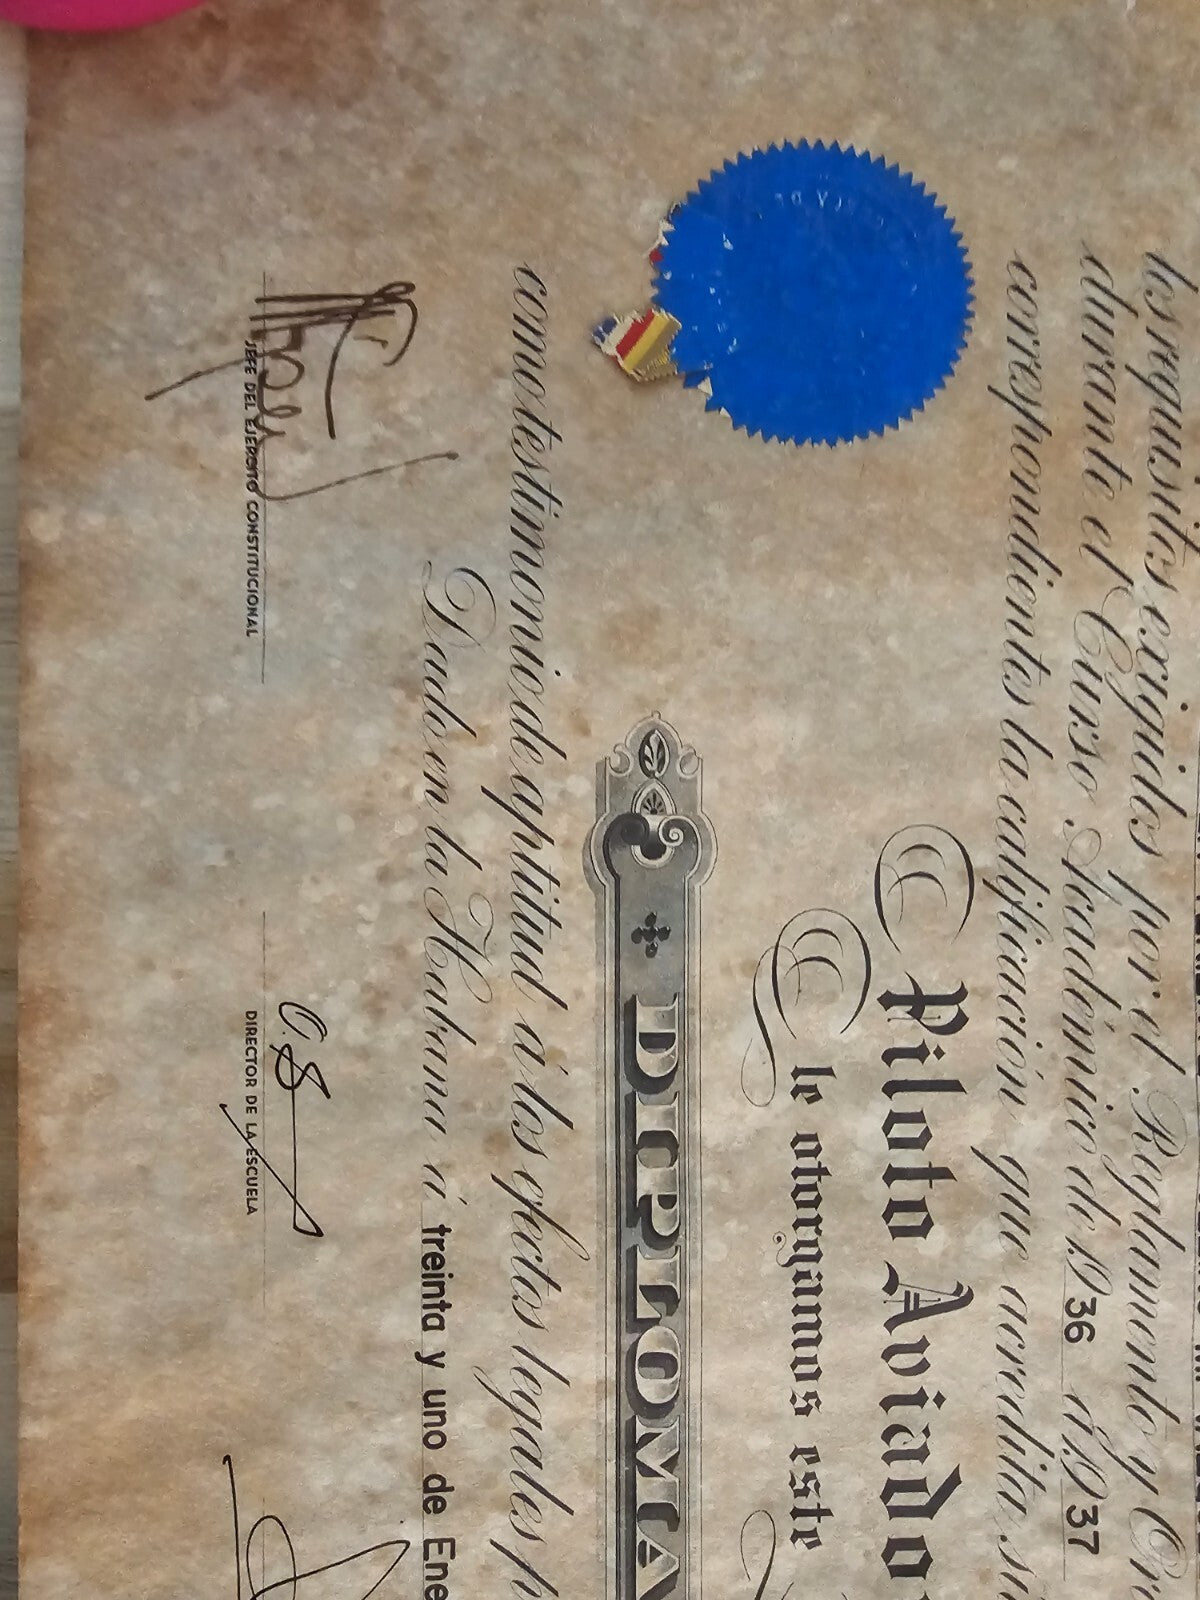 los requisitos exigidos por el Reglamento y
durante el Curso Académico de 1936 á 1937
correspondientes la calificación que acredita su
Piloto Aviador
le otorgamos este
DIPLOMA
como testimonio de aptitud á los efectos legales
Dado en la Habana á treinta y uno de Ene
JEFE DEL EJERCITO CONSTITUCIONAL
DIRECTOR DE LA ESCUELA